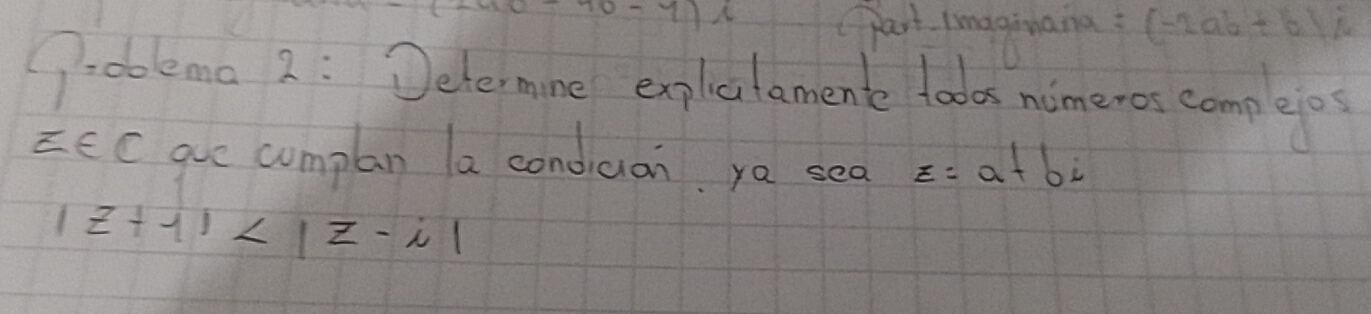 Part. Imaginaria = (-2ab + b) i
Problema 2: Determine explicitamente todos números complejos
z ∈ C que cumplan la condición. ya sea z = a + bi
|z + 1| < |z - i|